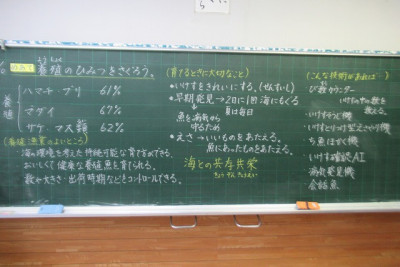 養殖のひみつをさぐろう。
ようしょく
養殖
ハマチ・ブリ 61%
マダイ 67%
サケ・マス類 62%
(養殖漁業のよいところ)
海の環境を考えた持続可能な育て方ができる。
おいしくて健康な養殖魚を育てられる。
数や大きさ・出荷時期などをコントロールできる。
(育てるときに大切なこと)
・いけすをきれいにする。
・早期発見→2日に1回海にもぐる
↓
夏は毎日
魚を病気から
守るため
・えさ→いいものをあたえる。
魚にあったものをあたえる。
海との共存共栄
きょうぞんきょうえい
(こんな技術があれば…)
・び数カウンター
いけすの中の数を
数える。
・いけすそうじ機
・いけすとりつけ型えさやり機
・ち魚ほかく機
・いけす確認AI
・病気発見機
・会話魚